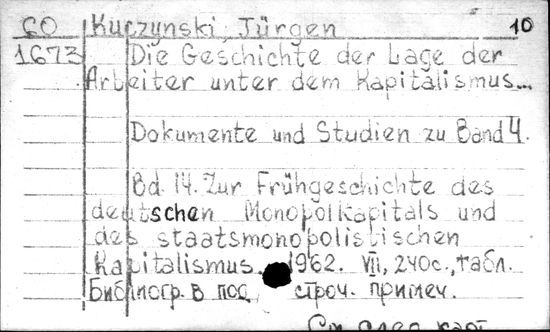 60 Kuczynski, Jürgen 10
1673 Die Geschichte der Lage der
Arbeiter unter dem Kapitalismus...
Dokumente und Studien zu Band 4.
Bd. 14. Zur Frühgeschichte des
deutschen Monopolkapitals und
des staatsmonopolistischen
Kapitalismus. 1962. VIII, 240с., табл.
Библиогр. в под строч. примеч.
См. след. карт.